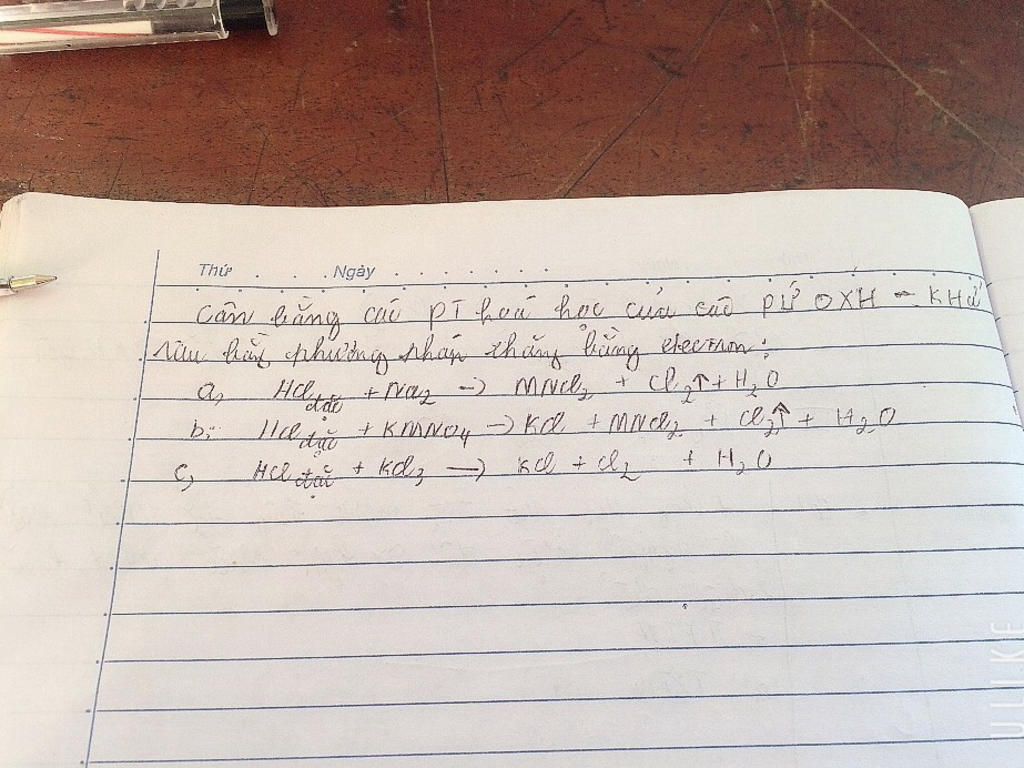 Thứ . . . . Ngày . . . . . . .
Cân bằng các PT hoá học của các PỨ OXH - KHỬ
sau bằng phương pháp thăng bằng electron:
a, HCl đặc + NaO2 → MNCl2 + Cl2↑ + H2O
b, HCl đặc + KMNO4 → KCl + MNCl2 + Cl2↑ + H2O
c, HCl đặc + KCl3 → KCl + Cl2 + H2O
ULIKE